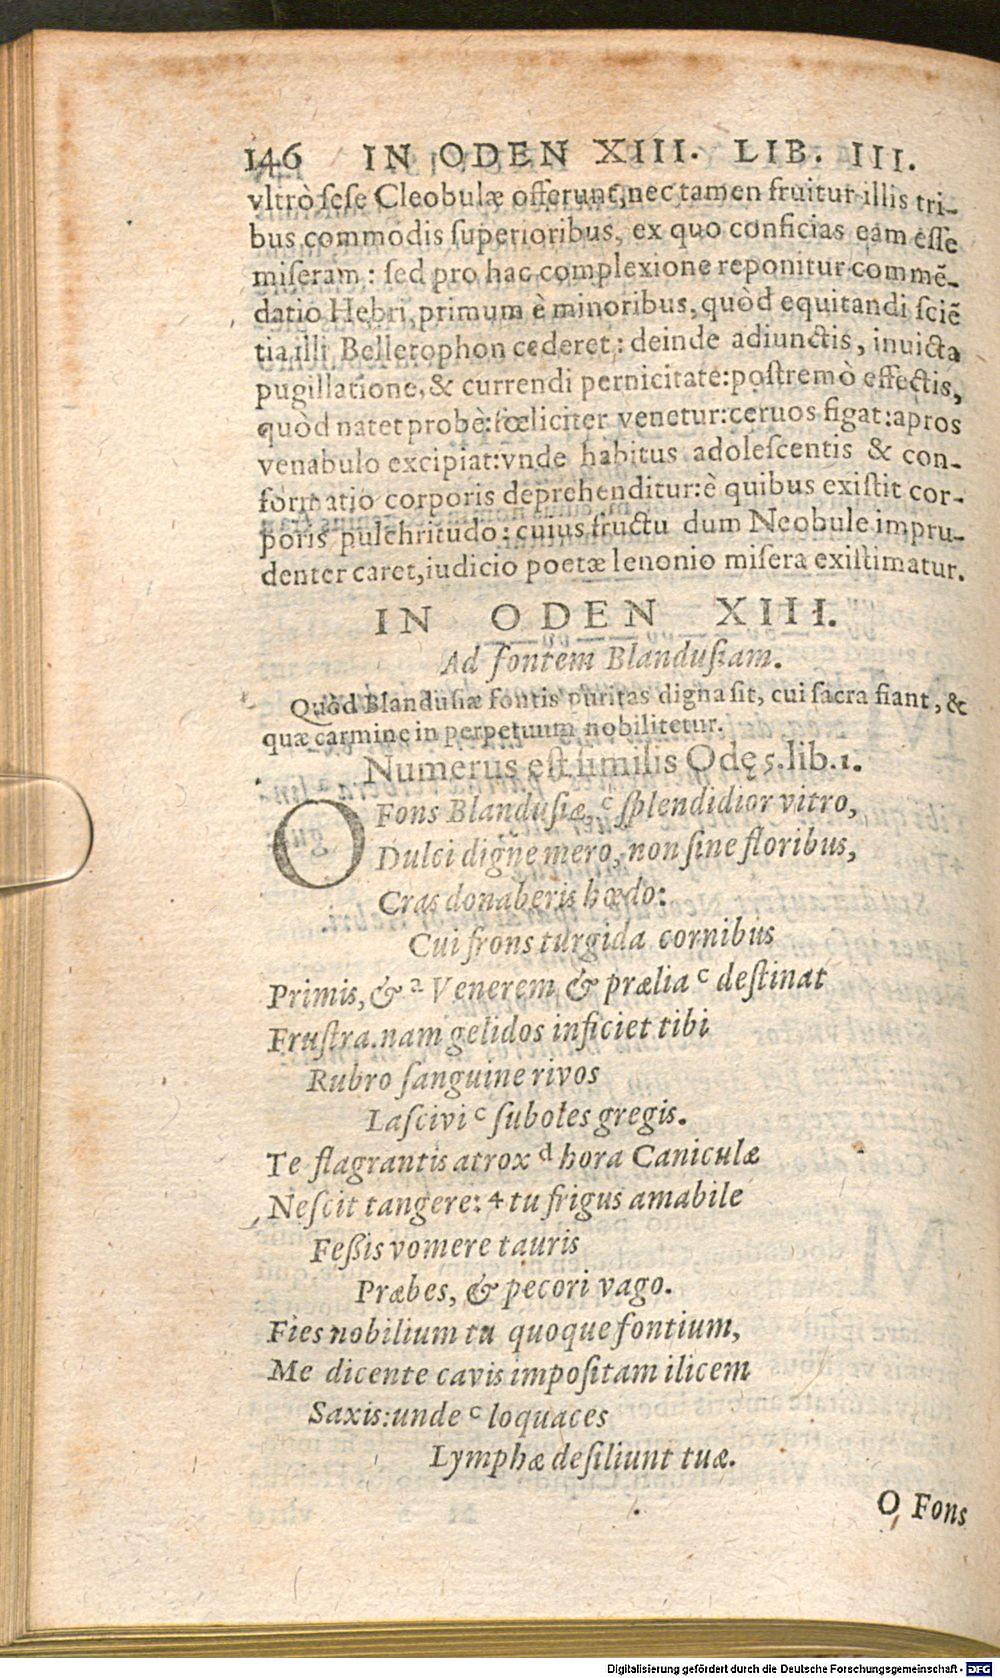 146 IN ODEN XIII. LIB. III.
vltrò ſeſe Cleobulæ offerunt, nec tamen fruitur illis tri-
bus commodis ſuperioribus, ex quo conficias eam eſſe
miſeram: ſed pro hac complexione reponitur commẽ-
datio Hebri, primum è minoribus, quòd equitandi ſciẽ
tia illi Bellerophon cederet: deinde adiunctis, invicta
pugillatione, & currendi pernicitate: poſtremò effectis,
quòd natet probè: fœliciter venetur: ceruos figat: apros
venabulo excipiat: vnde habitus adoleſcentis & con-
formatio corporis deprehenditur: è quibus exiſtit cor-
poris pulchritudo: cuius fructu dum Neobule impru-
denter caret, iudicio poetæ lenonio miſera exiſtimatur.
IN ODEN XIII.
Ad fontem Blanduſiam.
Quòd Blanduſiæ fontis puritas digna ſit, cui ſacra fiant, &
quæ carmine in perpetuum nobilitetur.
Numerus eſt ſimilis Odę 5. lib. 1.
O Fons Blanduſiæ, c ſplendidior vitro,
Dulci digne mero, non ſine floribus,
Cras donaberis hœdo:
Cui frons turgida cornibus
Primis, & a Venerem & prælia c deſtinat
Fruſtra. nam gelidos inficiet tibi
Rubro ſanguine rivos
Laſcivi c ſuboles gregis.
Te flagrantis atrox d hora Caniculæ
Neſcit tangere: 4 tu frigus amabile
Feßis vomere tauris
Præbes, & pecori vago.
Fies nobilium tu quoque fontium,
Me dicente cavis impoſitam ilicem
Saxis: unde c loquaces
Lymphæ deſiliunt tuæ.
O Fons
Digitalisierung gefördert durch die Deutsche Forschungsgemeinschaft - DFG